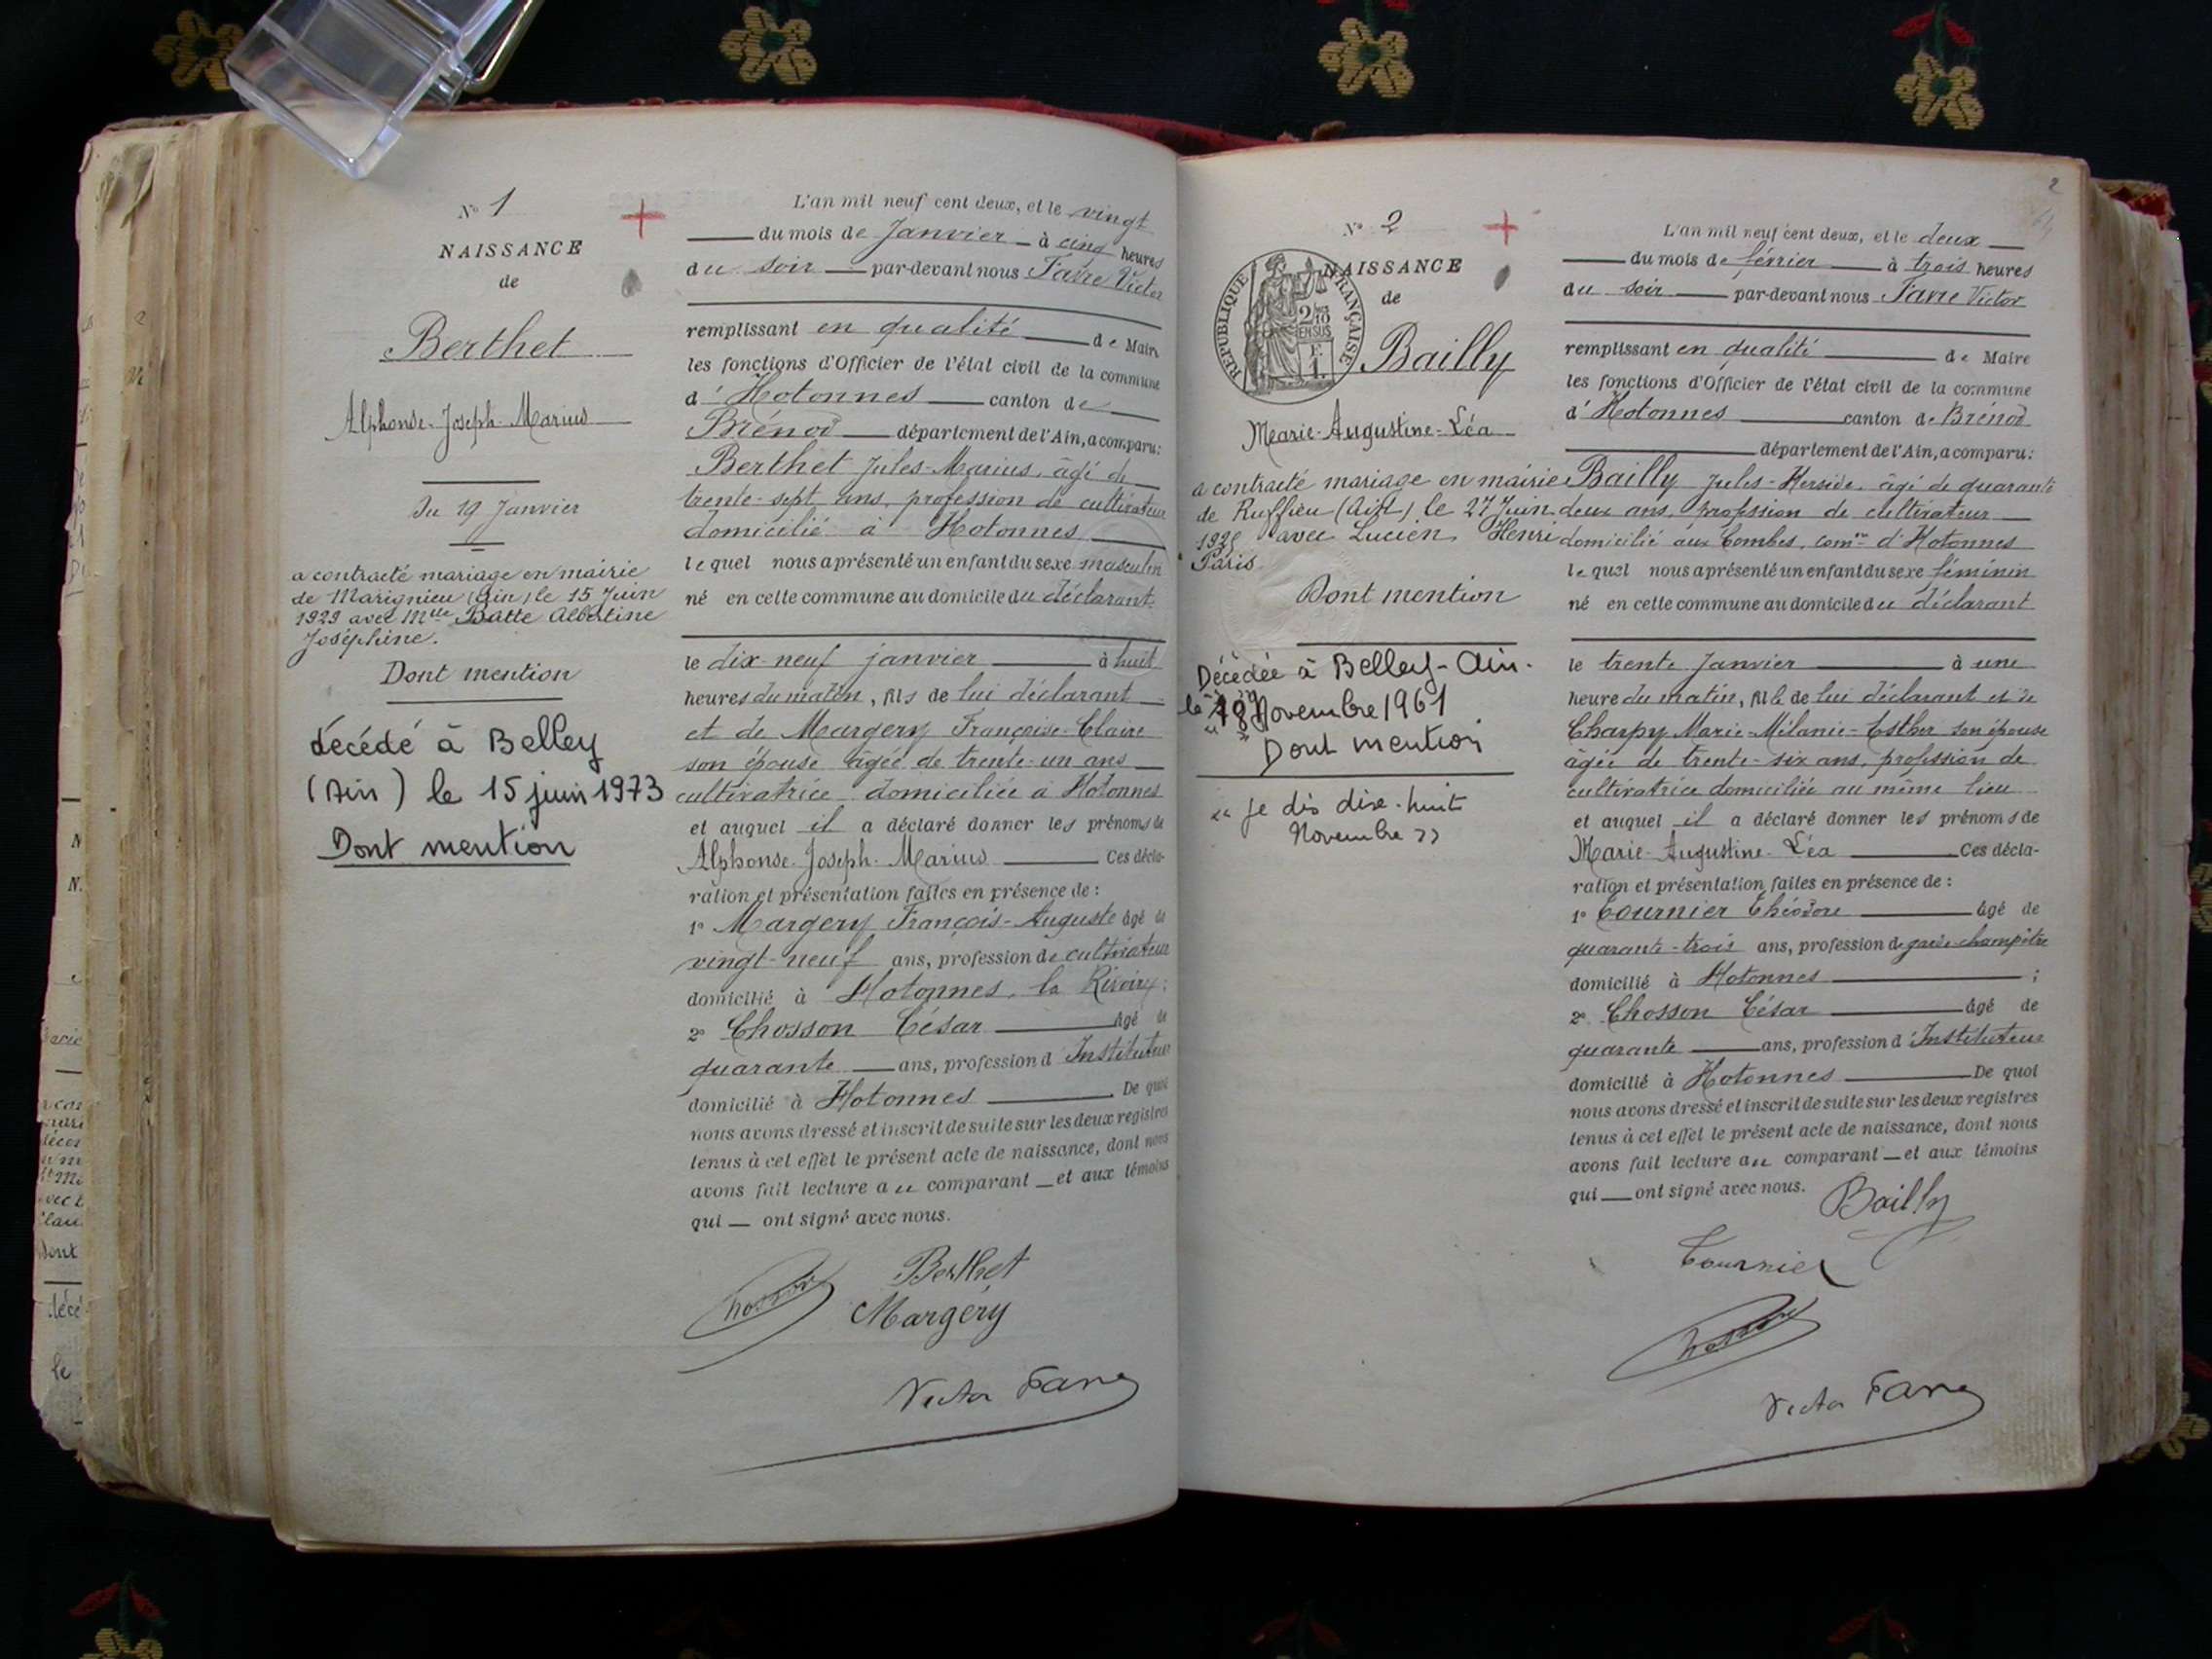 N° 1
NAISSANCE
de
Berthet
Alphonse-Joseph-Marius
Du 19 Janvier
a contracté mariage en mairie
de Marignieu (Ain) le 15 Juin
1929 avec Mlle Batte Albertine
Joséphine.
Dont mention
décédé à Belley
(Ain) le 15 juin 1973
Dont mention
L'an mil neuf cent deux, et le vingt
du mois de Janvier à cinq heures
du soir par-devant nous Favre Victor
remplissant en qualité de Maire
les fonctions d'Officier de l'état civil de la commune
d'Hotonnes canton de
Brénod département de l'Ain, a comparu:
Berthet Jules-Marius, âgé de
trente-sept ans, profession de cultivateur
domicilié à Hotonnes
lequel nous a présenté un enfant du sexe masculin
né en cette commune au domicile du déclarant
le dix-neuf janvier à huit
heures du matin, fils de lui déclarant
et de Margery Françoise-Claire
son épouse âgée de trente-un ans
cultivatrice domiciliée à Hotonnes
et auquel il a déclaré donner les prénoms de
Alphonse-Joseph-Marius Ces décla-
ration et présentation faites en présence de:
1° Margery François-Auguste âgé de
vingt-neuf ans, profession de cultivateur
domicilié à Hotonnes, la Rivoire;
2° Chosson César âgé de
quarante ans, profession d'Instituteur
domicilié à Hotonnes De quoi
nous avons dressé et inscrit de suite sur les deux registres
tenus à cet effet le présent acte de naissance, dont nous
avons fait lecture au comparant et aux témoins
qui ont signé avec nous.
Berthet
Chosson
Margéry
Victor Favre
2
N° 2
NAISSANCE
de
REPUBLIQUE FRANÇAISE
2/10 EN SUS
Bailly
Marie-Augustine-Léa
a contracté mariage en mairie
de Ruffieu (Ain) le 27 Juin
avec Lucien, Henri
Paris.
Dont mention
Décédée à Belley-Ain.
le 18 Novembre 1961
Dont mention
"Je dis dix-huit
Novembre"
L'an mil neuf cent deux, et le deux
du mois de février à trois heures
du soir par-devant nous Favre Victor
remplissant en qualité de Maire
les fonctions d'Officier de l'état civil de la commune
d'Hotonnes canton de Brénod
département de l'Ain, a comparu:
Bailly Jules- âgé de quarante
deux ans, profession de cultivateur
domicilié aux Combes, comne d'Hotonnes
lequel nous a présenté un enfant du sexe féminin
né en cette commune au domicile du déclarant
le trente Janvier à une
heure du matin, fille de lui déclarant et de
Charpy Marie-Mélanie-Esther son épouse
âgée de trente-six ans, profession de
cultivatrice domiciliée au même lieu
et auquel il a déclaré donner les prénoms de
Marie-Augustine-Léa Ces décla-
ration et présentation faites en présence de:
1° Tournier Théodore âgé de
quarante-trois ans, profession de garde-champêtre
domicilié à Hotonnes;
2° Chosson César âgé de
quarante ans, profession d'Instituteur
domicilié à Hotonnes De quoi
nous avons dressé et inscrit de suite sur les deux registres
tenus à cet effet le présent acte de naissance, dont nous
avons fait lecture au comparant et aux témoins
qui ont signé avec nous.
Bailly
Tournier
Chosson
Victor Favre